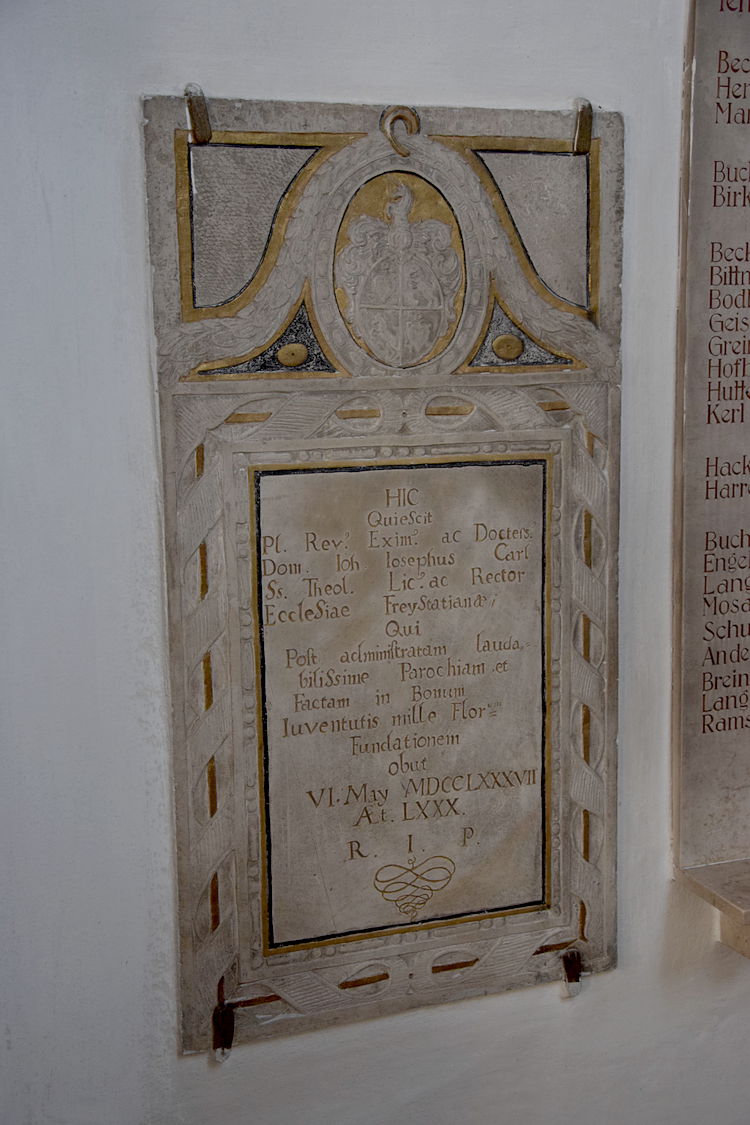 HIC
QuieScit
Pl. Rev.? Exim.? ac Doctiss.
Dom. Ioh. Iosephus Carl
Ss. Theol. Lic.? ac Rector
EccleSiae FreyStatianæ;
Qui
Post adminiſtratam lauda-
biliSsime Parochiam et
Factam in Bonum
Iuventutis mille Flor.
Fundationem
obiit
VI. May MDCCLXXXVII
Æt. LXXX.
R. I. P.
Her
Mar
Buch
Birk
Beck
Bittn
Geis
Grein
Hofb
Hutte
Kerl
Hack
Harre
Buch
Engel
Lang
Schu
Ande
Brein
Lang
Rams